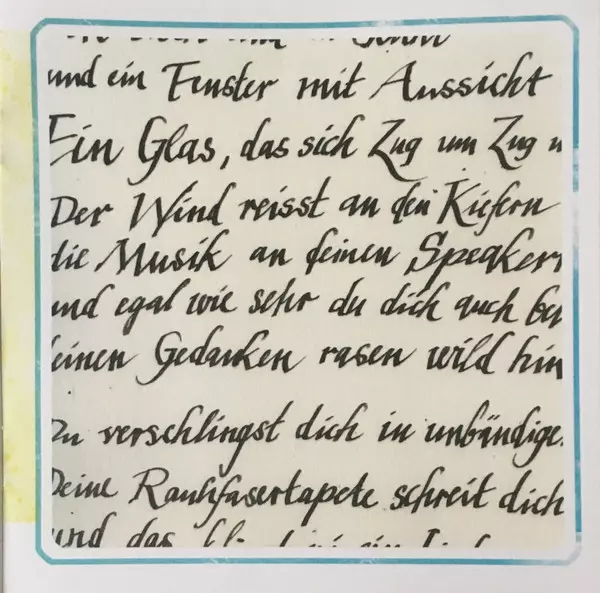 und ein Fenster mit Aussicht
Ein Glas, das sich Zug um Zug
Der Wind reisst an den Kiefern
die Musik an deinen Speakern
und egal wie sehr du dich auch
deinen Gedanken rasen wild hin
Du verschlingst dich in unbändige
Deine Rauhfasertapete schreit dich
und das